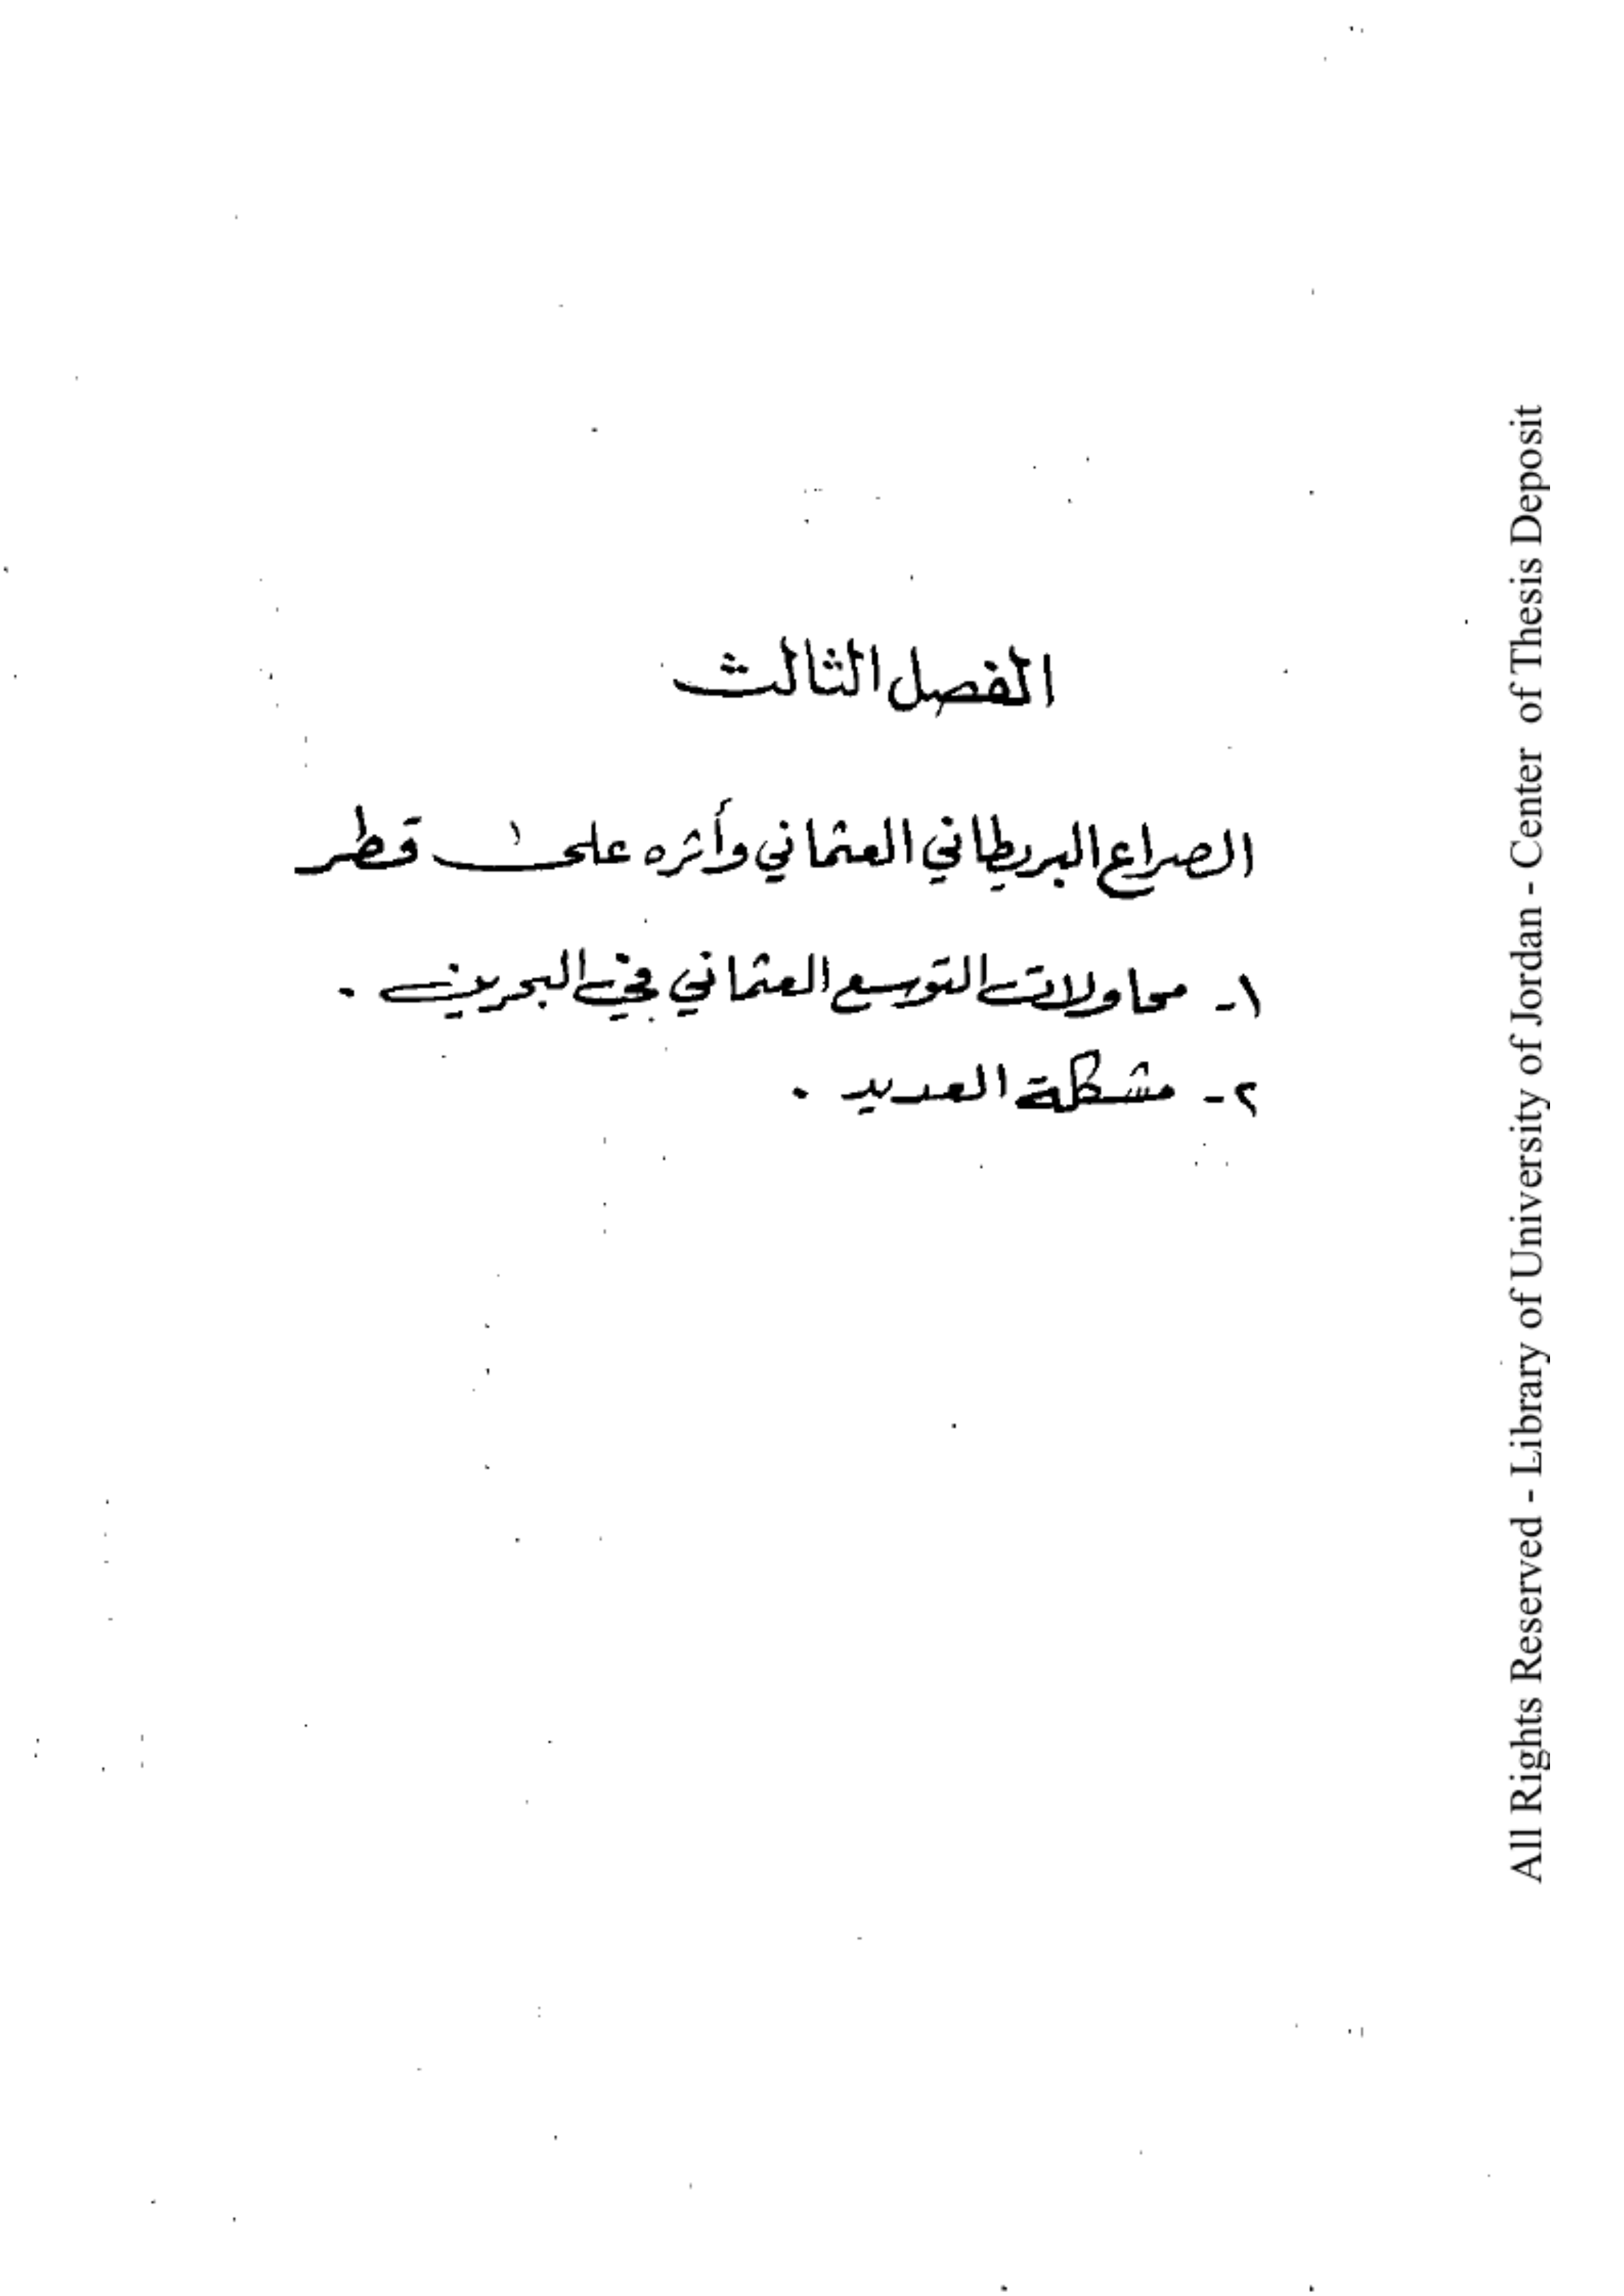 الفصل الثالث
الصراع البريطاني العثماني وأثره على قطر
١- محاولات التوسع العثماني في البحرين .
٢- مشكلة العديد .
All Rights Reserved - Library of University of Jordan - Center of Thesis Deposit